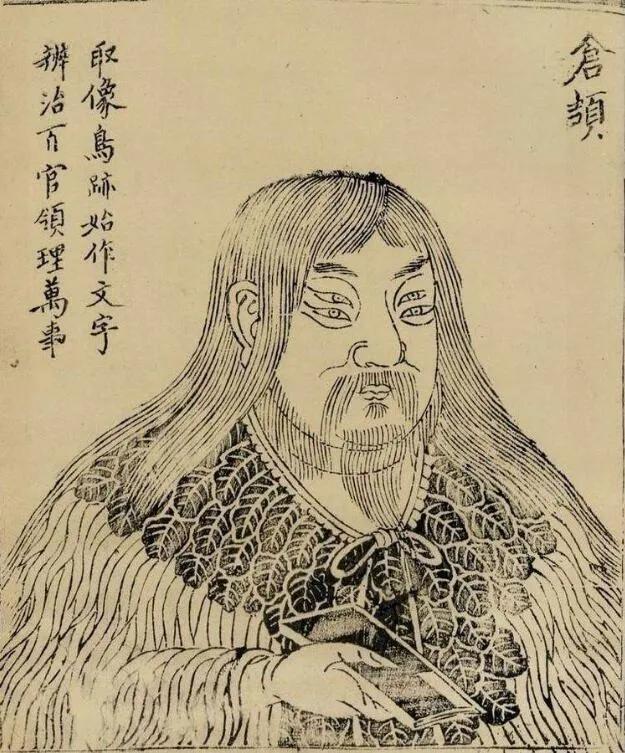 倉頡
取像鳥跡始作文字
辧治百官領理萬事